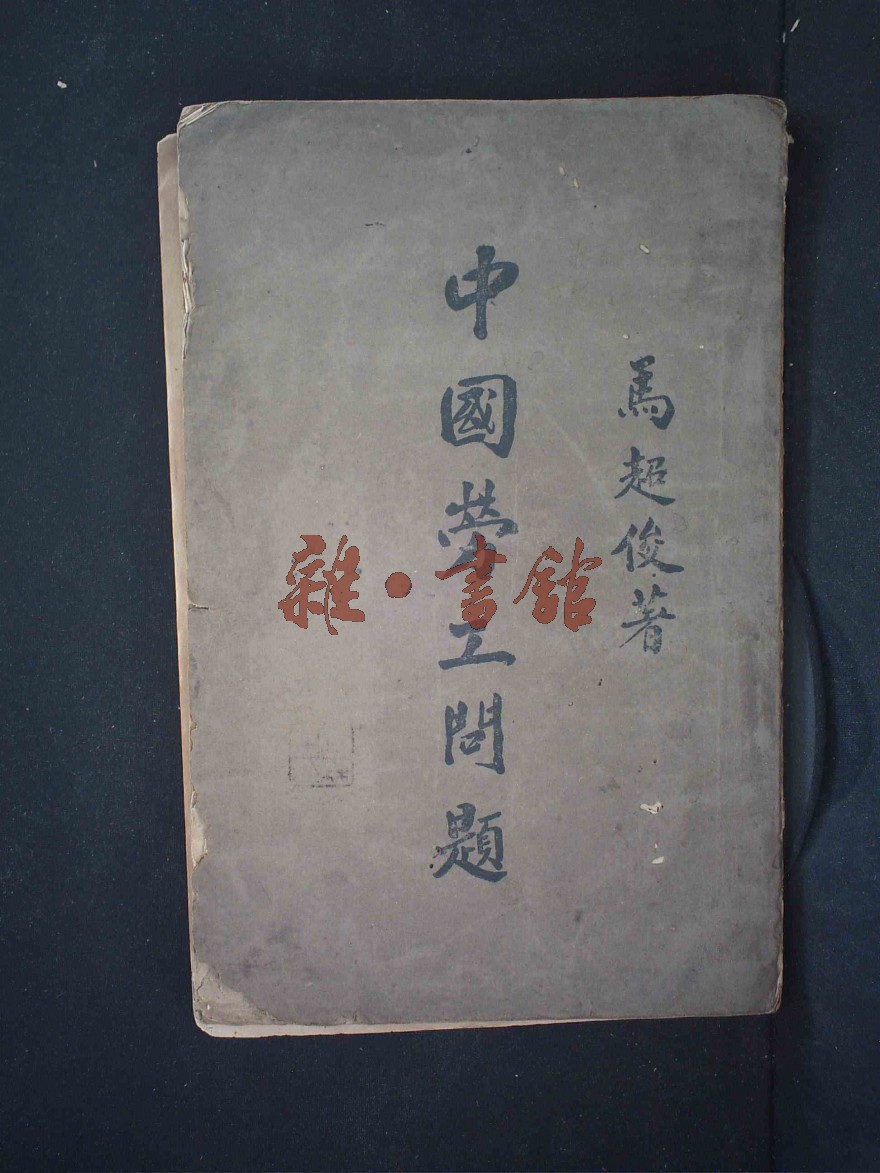 馬超俊著
中國勞工問題
雜·書館